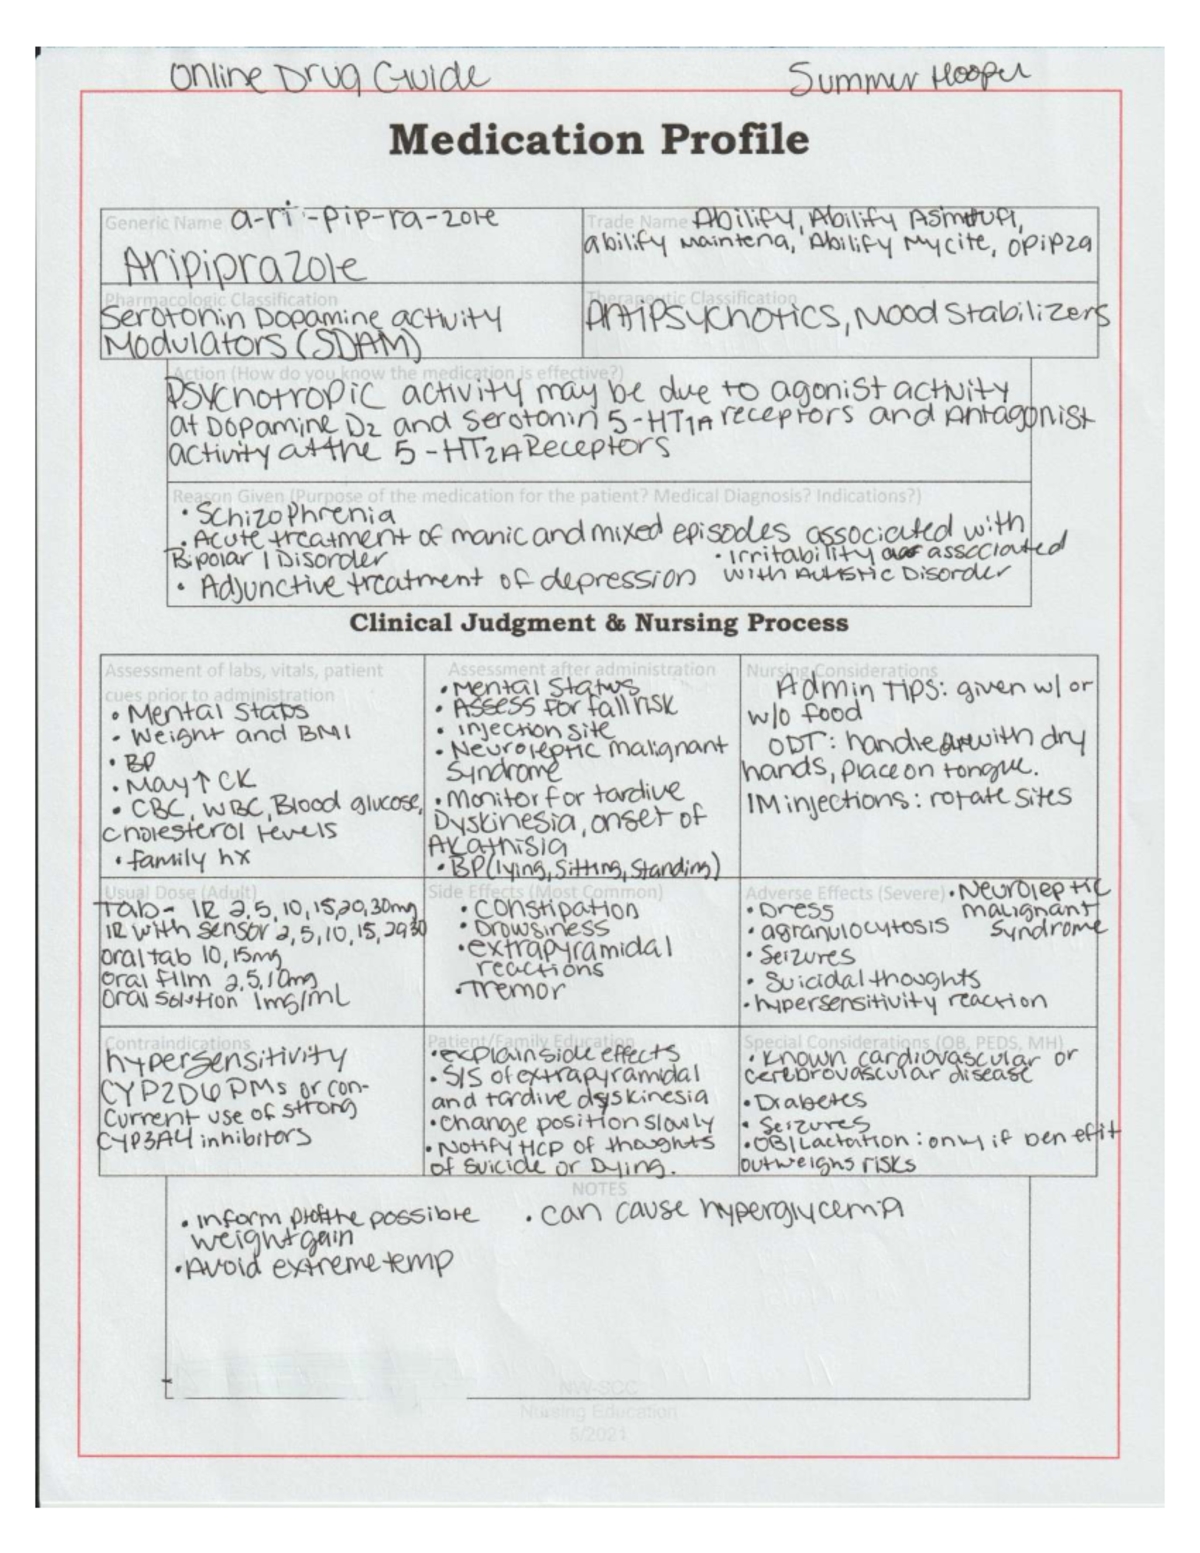 Online Drug Guide Summer Hooper
Medication Profile
Generic Name a-ri-pip-ra-zole
Aripiprazole
Trade Name Abilify, Abilify Asimtufi,
abilify Maintena, Abilify Mycite, Opipza
Pharmacologic Classification
Serotonin Dopamine activity
Modulators (SDAM)
Therapeutic Classification
Antipsychotics, Mood Stabilizers
Action (How do you know the medication is effective?)
Psychotropic activity may be due to agonist activity
at Dopamine D2 and Serotonin 5-HT1A receptors and Antagonist
activity at the 5-HT2A Receptors
Reason Given (Purpose of the medication for the patient? Medical Diagnosis? Indications?)
• Schizophrenia
• Acute treatment of manic and mixed episodes associated with
Bipolar 1 Disorder
• Irritability associated
with Autistic Disorder
• Adjunctive treatment of depression
Clinical Judgment & Nursing Process
Assessment of labs, vitals, patient
cues prior to administration
• Mental Stats
• Weight and BMI
• BP
• May ↑ CK
• CBC, WBC, Blood glucose,
cholesterol levels
• family hx
Assessment after administration
• Mental Status
• Assess for fall risk
• injection site
• Neuroleptic malignant
Syndrome
• Monitor for tardive
Dyskinesia, onset of
Akathisia
• BP (lying, Sitting, Standing)
Nursing Considerations
Admin Tips: given w/ or
w/o food
ODT: handle with dry
hands, Place on tongue.
IM injections: rotate sites
Usual Dose (Adult)
Tab- IR 2,5,10,15,20,30mg
IR with sensor 2,5,10,15,20,30
oral tab 10, 15mg
Oral film 2,5,10mg
Oral solution 1mg/mL
Side Effects (Most Common)
• Constipation
• Drowsiness
• extrapyramidal
reactions
• Tremor
Adverse Effects (Severe) • Neuroleptic
malignant
Syndrome
• Dress
• agranulocytosis
• Seizures
• Suicidal thoughts
• hypersensitivity reaction
Contraindications
hypersensitivity
CYP2D6 PMs or con-
current use of strong
CYP3A4 inhibitors
Patient/Family Education
• explain side effects
• S/S of extrapyramidal
and tardive dyskinesia
• Change position slowly
• Notify HCP of thoughts
of suicide or Dying.
Special Considerations (OB, PEDS, MH)
• Known cardiovascular or
cerebrovascular disease
• Diabetes
• Seizures
• OB/Lactation: only if benefit
outweighs risks
NOTES
• inform pt of the possible
weight gain
• Avoid extreme temp
• can cause hyperglycemia
NW-SCC
Nursing Education
5/2021